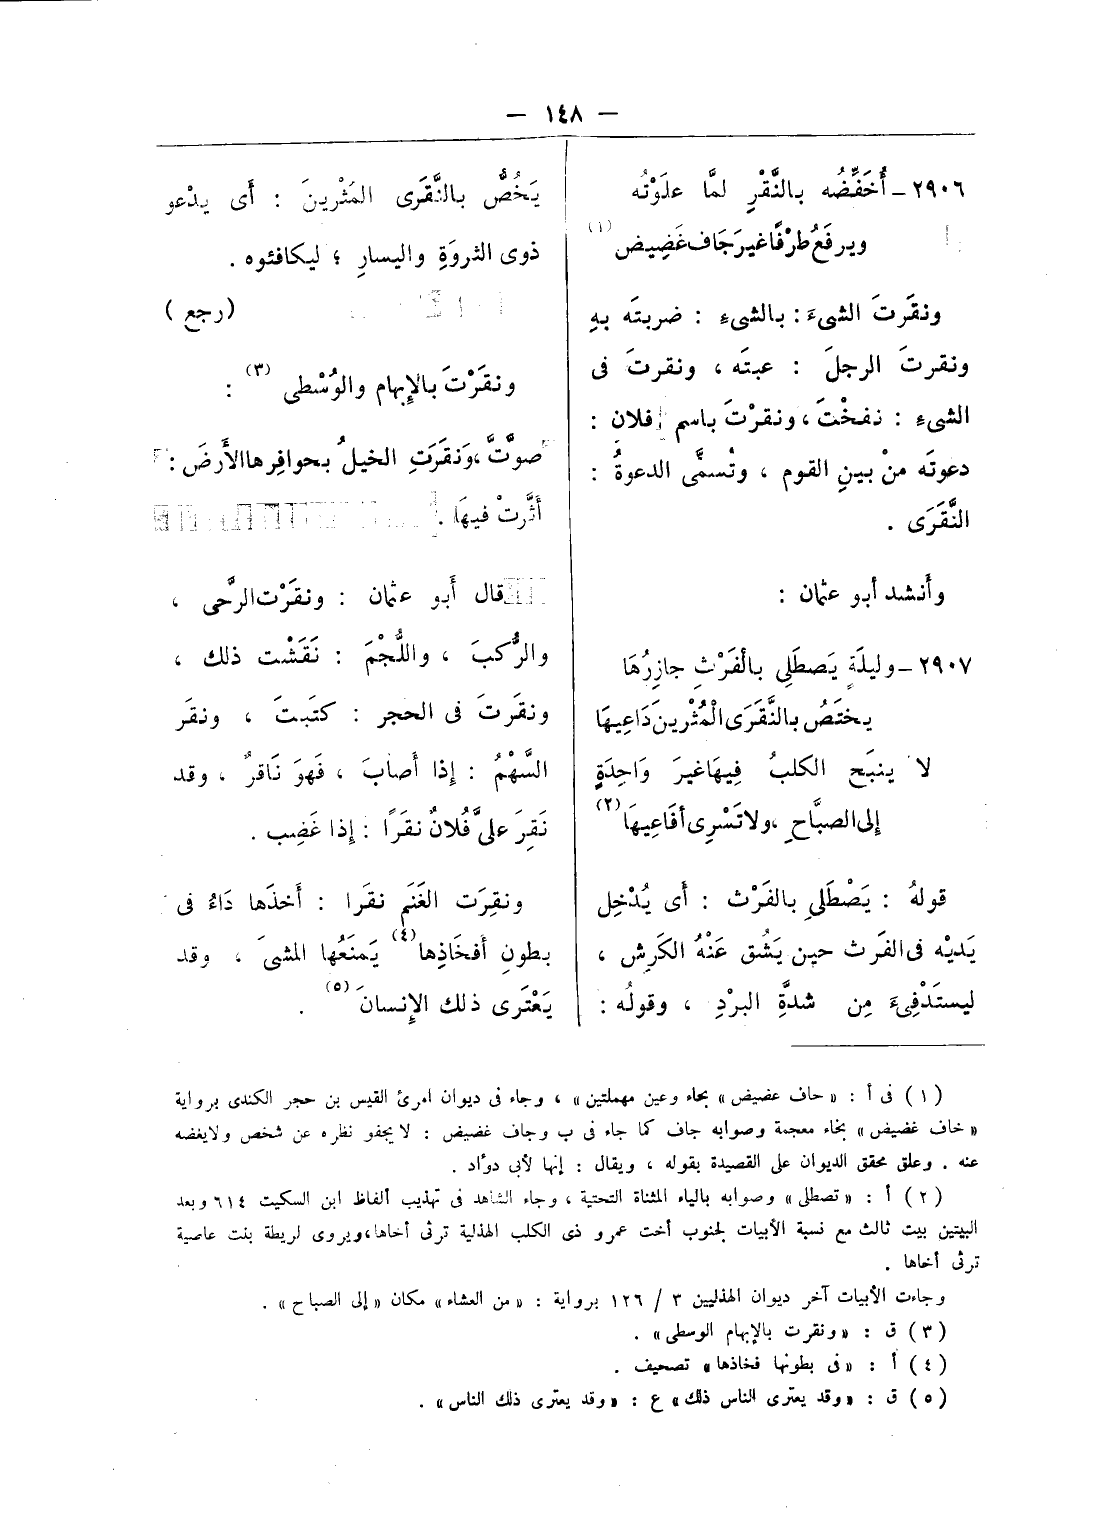 — ١٤٨ —
٢٩٠٦ - أُخَفِّضُه بالنَّقْرِ لمَّا علَوْتُه
ويرفَعُ طرْفًا غيرَ جَاف غَضِيض (١)
ونقرتَ الشىءَ : بالشىءِ : ضربتَه بهِ
ونقرتَ الرجلَ : عبتَه ، ونقرتَ فى
الشىءِ : نفختَ ، ونقرْتَ باسم فلان :
دعوتَه منْ بينِ القوم ، وتُسمَّى الدعوةُ :
النَّقَرَى .
وأَنشد أبو عثمان :
٢٩٠٧ - وليلَةٍ يَصطَلِى بالْفَرْثِ جازِرُهَا
يختَصُ بالنَّقَرَى الْمُثْرينَ دَاعِيهَا
لا ينبَح الكلبُ فِيهَا غيرَ وَاحِدَةٍ
إلى الصبَّاحِ ، ولا تَسْرِى أفَاعِيهَا (٢)
قولهُ : يَصْطَلىِ بالفَرْث : أَى يُدْخِل
يَديْه فى الفَرث حين يَشُق عَنْهُ الكَرِش ،
ليستَدْفِىءَ مِن شدَّةِ البرْدِ ، وقولُه :
يَخُصُّ بالنَّقَرى المَثْرينَ : أَى يدْعو
ذوى الثروَةِ واليسارِ ؛ ليكافئوه .
(رجع)
ونقَرْتَ بالإِبهام والوُسْطى (٣) :
صوَّتَّ ، وَنقَرَتِ الخيلُ بحوافِرها الأَرضَ :
أَثَّرتْ فيهَا .
قال أَبو عثمان : ونقَرْت الرَّحى ،
والرُّكبَ ، واللُّجْمَ : نَقَشْت ذلك ،
ونقَرتَ فى الحجر : كتَبتَ ، ونقَر
السَّهْمُ : إِذا أَصابَ ، فَهوَ نَاقرٌ ، وقد
نَقِرَ علىَّ فُلانٌ نقَرًا : إِذا غَضِب .
ونقِرَت الغَنَم نقَرا : أَخذَها دَاءٌ فى
بطونِ أَفخَاذِها (٤) يَمنَعُها المشىَ ، وقد
يَعْتَرى ذلك الإِنسانَ (٥) .
(١) فى أ : «حاف عضيض» بحاء وعين مهملتين» ، وجاء فى ديوان امرئ القيس بن حجر الكندى برواية
«خاف غضيض» بخاء معجمة وصوابه جاف كما جاء فى ب وجاف غضيض : لا يجفو نظره عن شخص ولا يغضه
عنه . وعلق محقق الديوان على القصيدة بقوله ، ويقال : إنها لأبى دوَاد .
(٢) أ : «تصطلى» وصوابه بالياء المثناة التحتية ، وجاء الشاهد فى تهذيب ألفاظ ابن السكيت ٦١٤ وبعد
البيتين بيت ثالث مع نسبة الأبيات لجنوب أخت عمرو ذى الكلب الهذلية ترثى أخاها ، ويروى لريطة بنت عاصية
ترثى أخاها .
وجاءت الأبيات آخر ديوان الهذليين ٣ / ١٢٦ برواية : «من العشاء» مكان «إلى الصباح» .
(٣) ق : «ونقرت بالإبهام الوسطى» .
(٤) أ : «فى بطونها فخاذها» تصحيف .
(٥) ق : «وقد يعترى الناس ذلك» ع : «وقد يعترى ذلك الناس» .